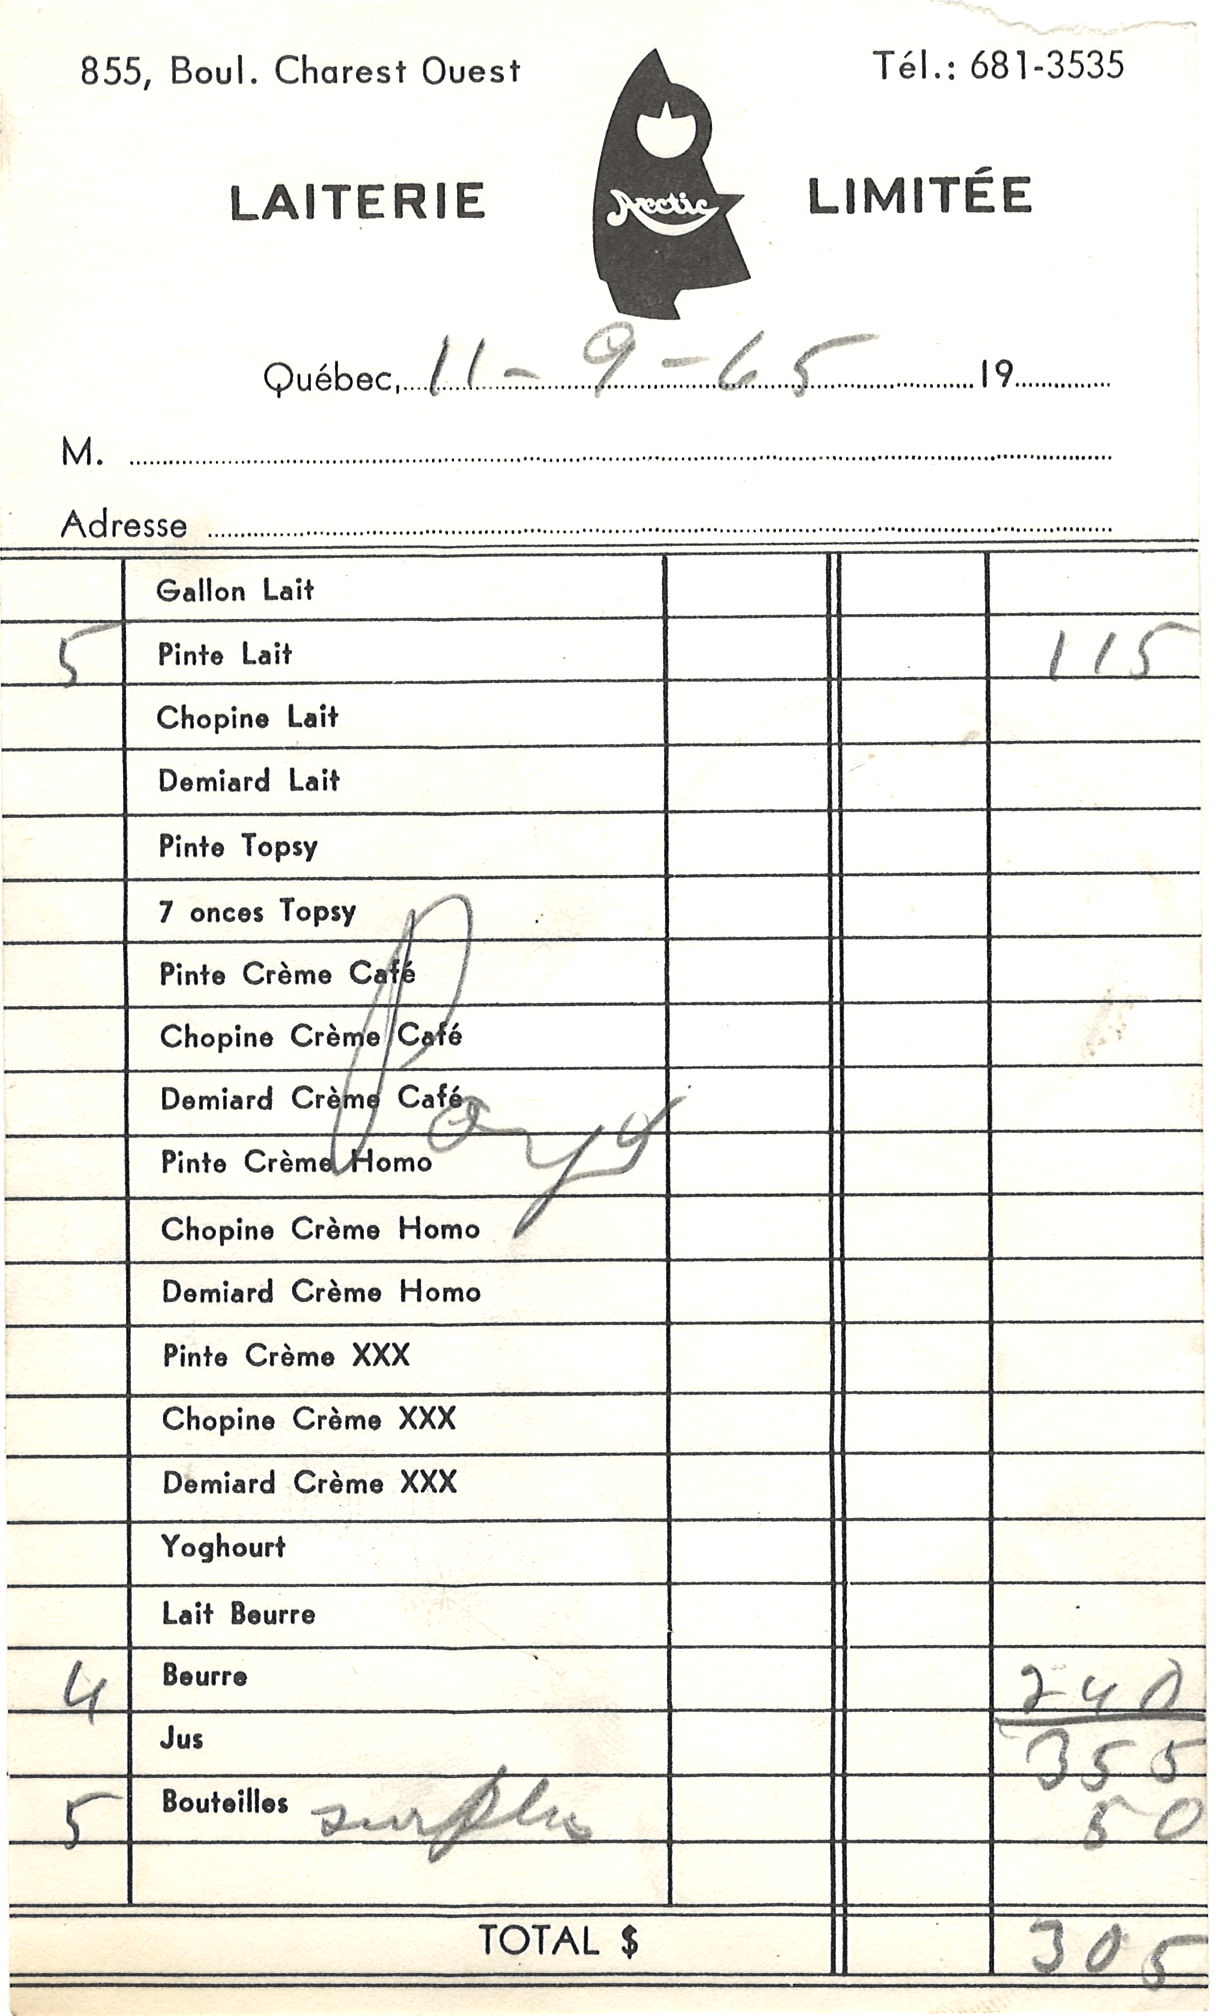 855, Boul. Charest Ouest Tél.: 681-3535
LAITERIE Arctic LIMITÉE
Québec, 11-9-65 19
M.
Adresse
Gallon Lait
5 Pinte Lait 115
Chopine Lait
Demiard Lait
Pinte Topsy
7 onces Topsy
Pinte Crème Café
Chopine Crème Café
Demiard Crème Café
Payé
Pinte Crème Homo
Chopine Crème Homo
Demiard Crème Homo
Pinte Crème XXX
Chopine Crème XXX
Demiard Crème XXX
Yoghourt
Lait Beurre
4 Beurre 240
Jus 355
5 Bouteilles surplus 50
TOTAL $ 305